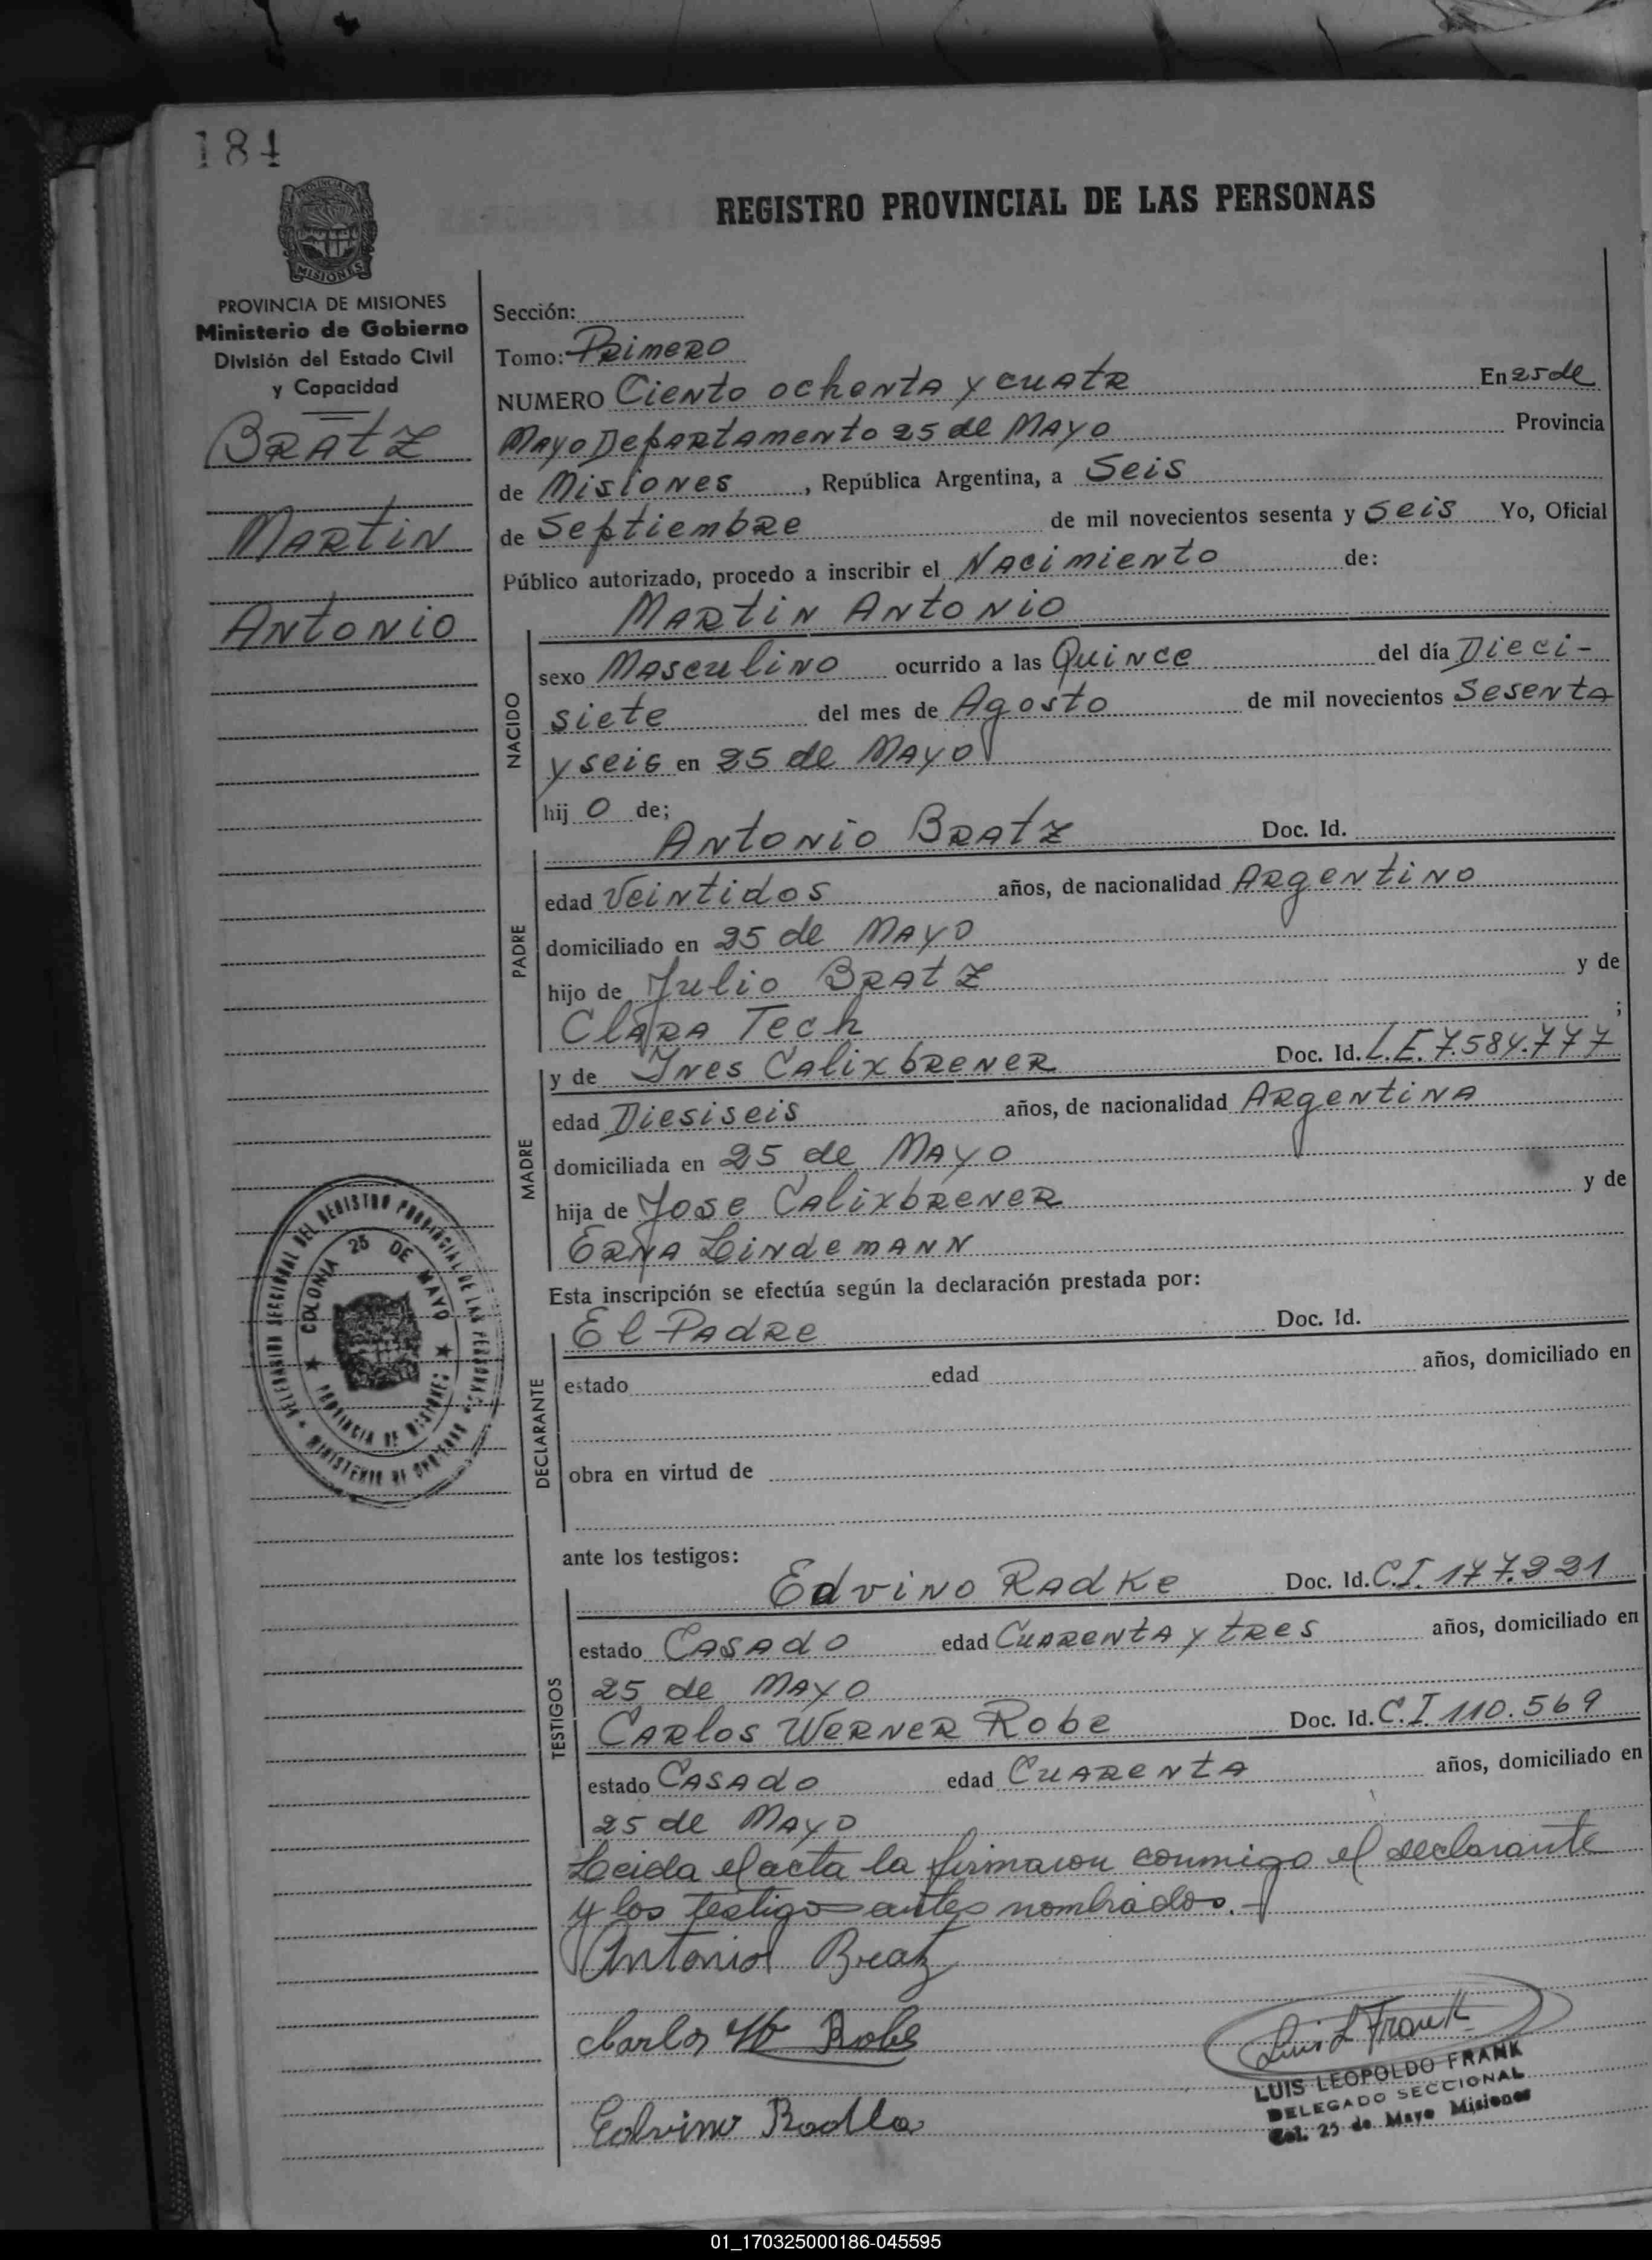 184
REGISTRO PROVINCIAL DE LAS PERSONAS
MISIONES
PROVINCIA DE MISIONES
Ministerio de Gobierno
División del Estado Civil
y Capacidad
BRAtZ
MARtiN
ANtONiO
Sección:
Tomo: PRimERO
NUMERO CieNto ochENtA y cuAtR En 25 de
MAyo DepARtAmeNto 25 de MAyo Provincia
de MisioNes, República Argentina, a Seis
de Septiembre de mil novecientos sesenta y seis Yo, Oficial
Público autorizado, procedo a inscribir el NAcimieNto de:
MARtiN ANtoNio
NACIDO
sexo MAsculiNo ocurrido a las QuiNce del día Dieci-
siete del mes de Agosto de mil novecientos SeseNtA
y seis en 25 de MAyo
hij o de;
PADRE
ANtoNio BRAtZ Doc. Id.
edad VeiNtidos años, de nacionalidad ARgeNtiNo
domiciliado en 25 de MAyo
hijo de Julio BRAtZ y de
ClARA Tech ;
MADRE
y de INes CAlixbReNeR Doc. Id. L.E. 7.584.777
edad Diesiseis años, de nacionalidad ARgeNtiNA
domiciliada en 25 de MAyo
hija de Jose CAlixbReNeR y de
ERNA LiNdemANN
Esta inscripción se efectúa según la declaración prestada por:
DECLARANTE
El PAdRe Doc. Id.
estado edad años, domiciliado en
obra en virtud de
ante los testigos:
TESTIGOS
EdviNo RAdKe Doc. Id. C.I. 177.221
estado CAsAdo edad CuAReNtA y tRes años, domiciliado en
25 de MAyo
CARlos WeRNeR Robe Doc. Id. C.I 110.569
estado CAsAdo edad CuAReNtA años, domiciliado en
25 de MAyo
Leida el acta la firmaron conmigo el declarante
y los testigos antes nombrados.-
Antonio Bratz
Carlos W Robe
Luis L Frank
LUIS LEOPOLDO FRANK
DELEGADO SECCIONAL
Col. 25 de Mayo Misiones
DELEGACION SECCIONAL DEL REGISTRO PROVINCIAL DE LAS PERSONAS
MINISTERIO DE GOBIERNO
COLONIA 25 DE MAYO
PROVINCIA DE MISIONES
01_170325000186-045595